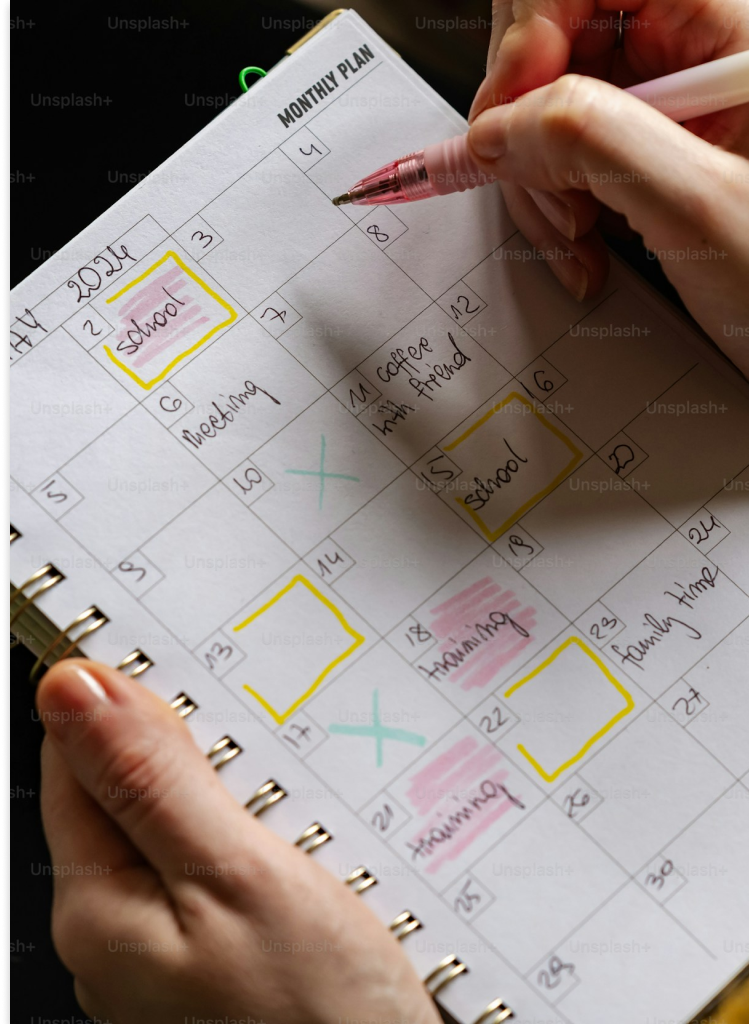 MONTHLY PLAN
2024
2
school
3
4
5
6
meeting
7
8
9
10
11 coffee
with friend
12
13
14
15
school
16
17
18
training
19
20
21
training
22
23
family time
24
25
26
27
29
30
Unsplash+